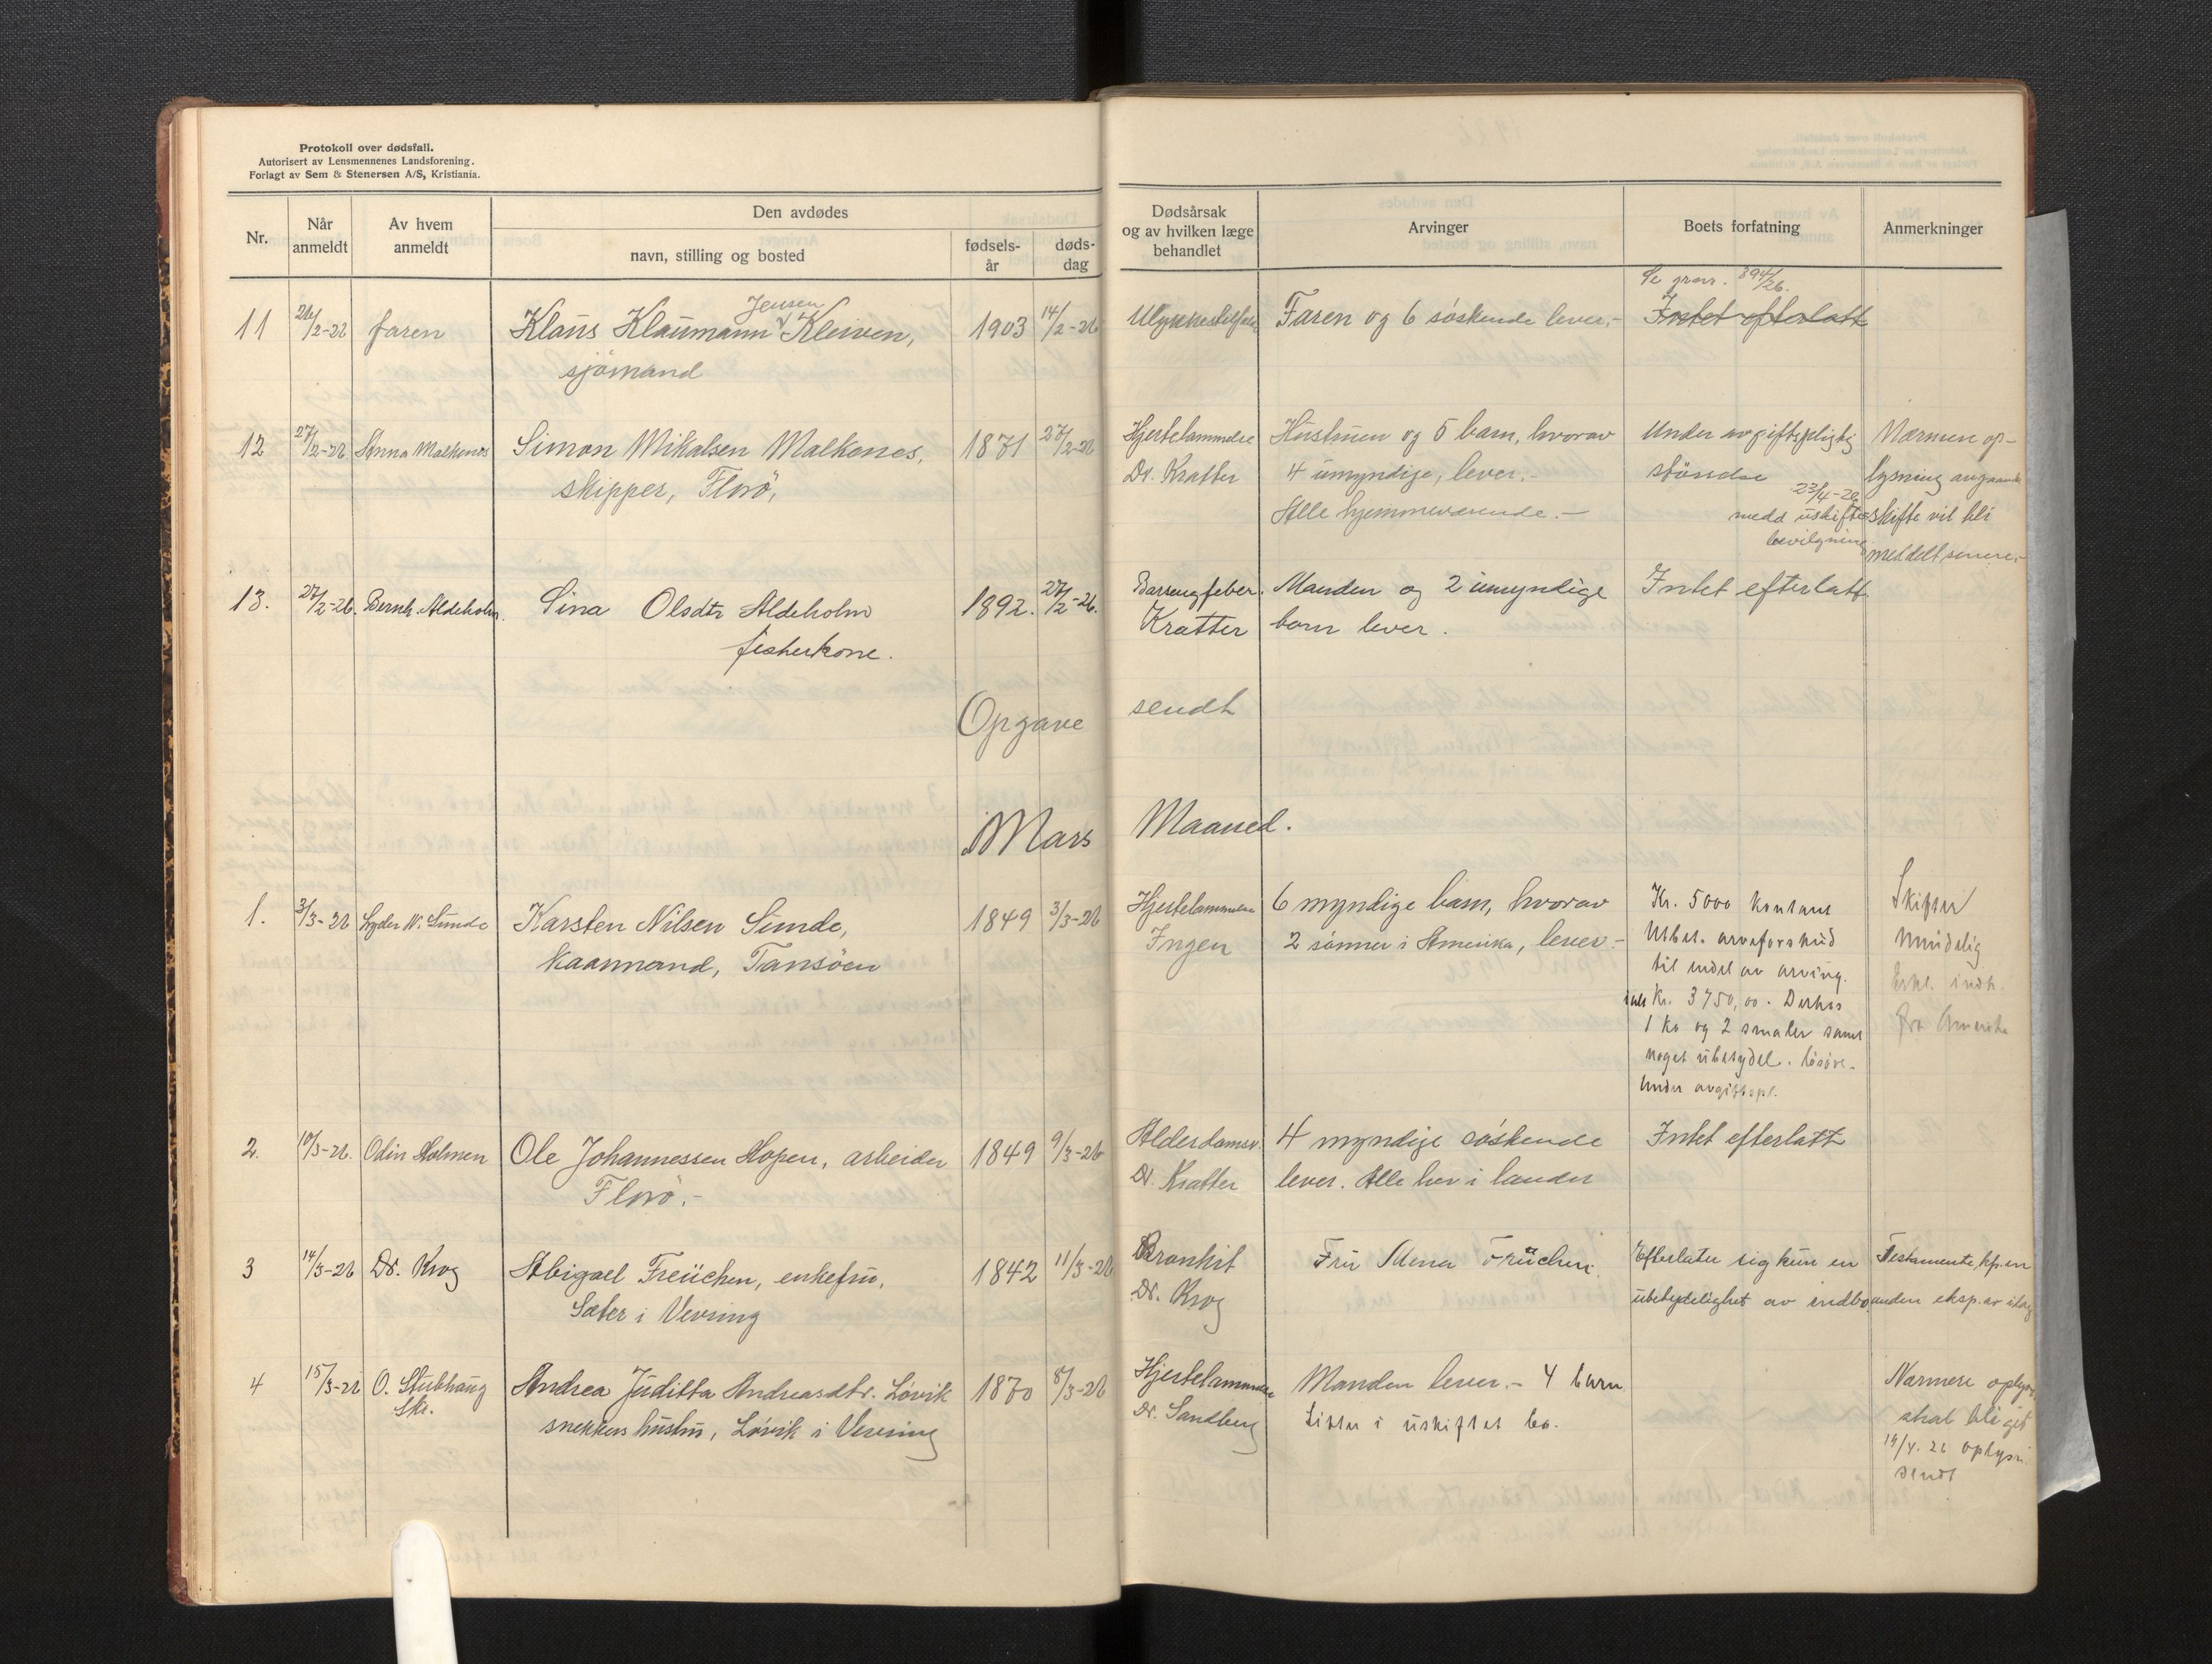 Protokoll over dødsfall.
Autorisert av Lensmennenes Landsforening.
Forlagt av Sem & Stenersen A/S, Kristiania.
Nr.
Når anmeldt
Av hvem anmeldt
Den avdødes
navn, stilling og bosted
fødsels-år
døds-dag
Dødsårsak og av hvilken læge behandlet
Arvinger
Boets forfatning
Anmerkninger
11 26/2-26 faren Klaus Klaumann Jensen Kleiven, 1903 14/2-26 Faren og 6 søskende lever.- Intet efterlatt
sjømand
Se grav. 394/26.
12 27/2-26 Anna Malkenes Simon Mikalsen Malkenes, 1871 27/2-26 Hjertelammelse Hustruen og 5 barn, hvorav Under avgiftspligtig Nærmere op-
skipper, Florø, Dr. Kratter 4 umyndige, lever.- størrelse lysning angaaende
Alle hjemmeværende.- 23/4-26 medd uskifte- bevilgning skifte vil bli
meddelt senere.-
13. 27/2-26. Bernh. Aldeholm. Sina Olsdtr Aldeholm 1892. 27/2-26. Barselfeber. Manden og 2 umyndige Intet efterlatt
fiskerkone. Kratter barn lever.
Opgave sendt
Mars Maaned.
1. 3/3-26 Lyder N. Sunde Karsten Nilsen Sunde, 1849 3/3-26 Hjertelammelse 6 myndige barn, hvorav Kr. 5000 kontant Skifter
kaarmand, Tansøen Ingen 2 sønner i Amerika, lever.- Utbet. arveforskud mindelig
til endel av arving. Erkl. indh.
Kr. 3750,00. Derhos fra Amerika
1 ko og 2 smaler samt
noget ubetydel. løsøre.
Under avgiftspl.
2. 10/3-26. Odin Holmen Ole Johannessen Hopen, arbeider 1849 9/3-26 Alderdomsv. 4 myndige søskende Intet efterlatt
Florø.- Dr. Kratter lever. Alle her i landet
3 14/3-26 Dr. Krog Abigael Freüchen, enkefru, 1842 11/3-26 Bronkit Fru Freüchen. Efterlater sig kun en Testamente, kp. en
Sæter i Vevring Dr. Krog ubetydelighet av indbo anden eksp. av idag
4 15/3-26 O. Stubhaug Andrea Juditta Andreasdtr. Løvik 1870 8/3-26 Hjertelammelse Manden lever.- 4 barn Nærmere oplysn.
Skr. snekkers hustru, Løvik i Vevring Dr. Sandberg Sitter i uskiftet bo. skal bli git
19/4. 26 oplysn.
sendt